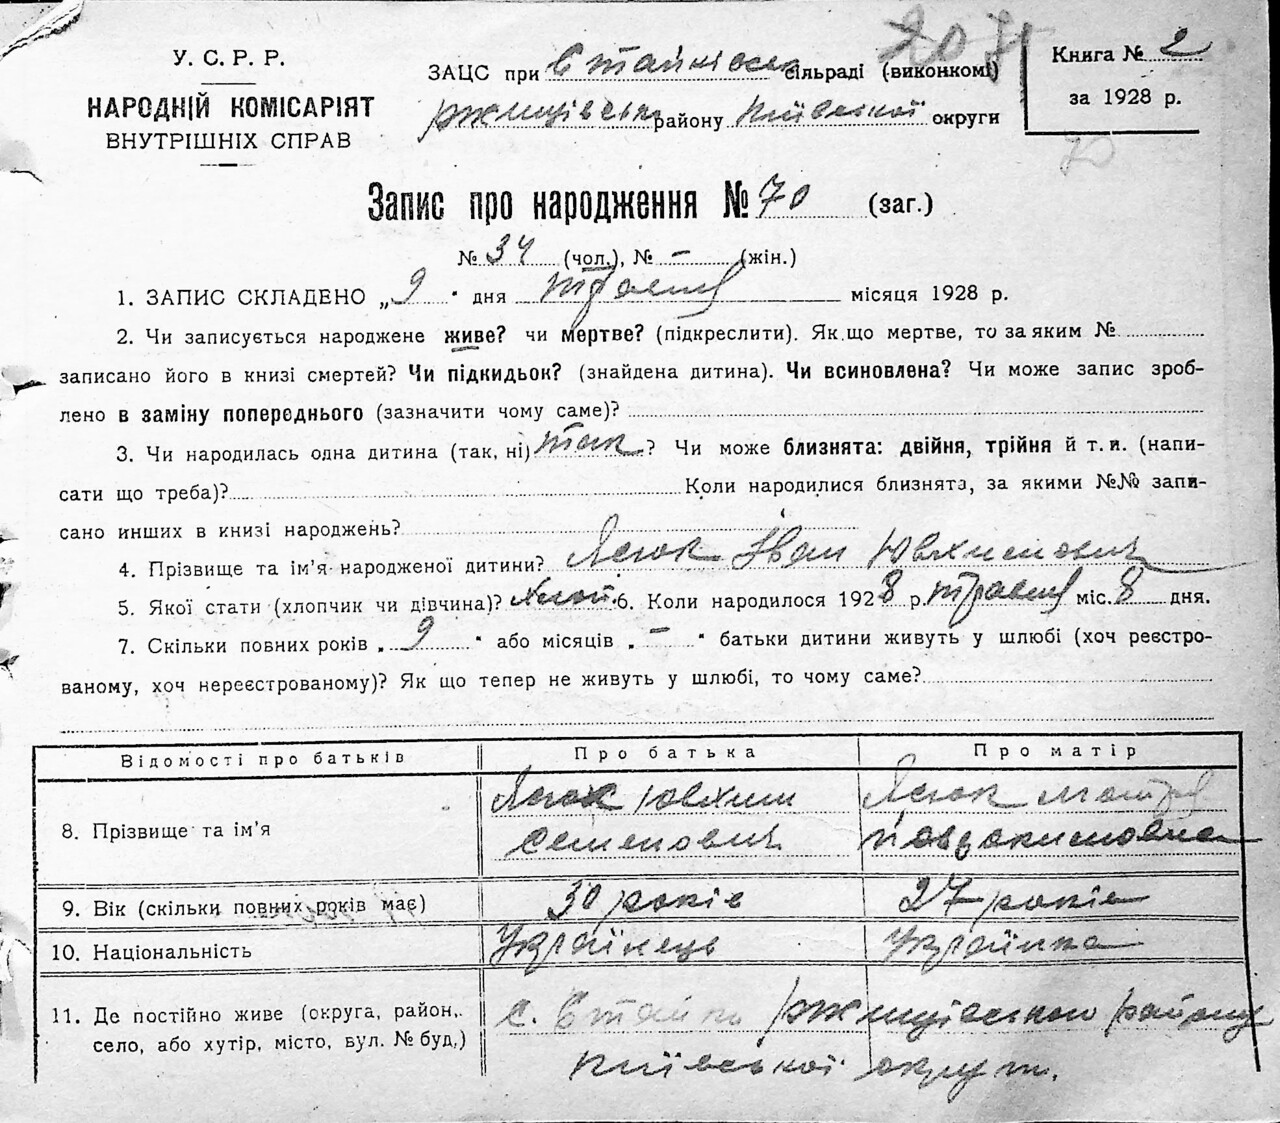 У. С. Р. Р.
НАРОДНІЙ КОМІСАРІЯТ
ВНУТРІШНІХ СПРАВ
ЗАЦС при Стайківськ сільраді (виконкомі)
Ржищівськ району Київської округи
Книга № 2
за 1928 р.
70
Запис про народження № 70 (заг.)
№ 34 (чол.), № – (жін.)
1. ЗАПИС СКЛАДЕНО „ 9 " дня травня місяця 1928 р.
2. Чи записується народжене живе? чи мертве? (підкреслити). Як що мертве, то за яким №
записано його в книзі смертей? Чи підкидьок? (знайдена дитина). Чи всиновлена? Чи може запис зроб-
лено в заміну попереднього (зазначити чому саме)?
3. Чи народилась одна дитина (так, ні) так ? Чи може близнята: двійня, трійня й т. и. (напи-
сати що треба)? Коли народилися близнята, за якими №№ запи-
сано инших в книзі народжень?
4. Прізвище та ім'я народженої дитини? Ясюк Іван Ювхимович
5. Якої стати (хлопчик чи дівчина)? 6. Коли народилося 1928 р. травня міс. 8 дня.
7. Скільки повних років „ 9 " або місяців „ – " батьки дитини живуть у шлюбі (хоч реєстро-
ваному, хоч нереєстрованому)? Як що тепер не живуть у шлюбі, то чому саме?
Відомості про батьків Про батька Про матір
8. Прізвище та ім'я Ясюк Ювхим Семенович Ясюк Мотря
9. Вік (скільки повних років має) 30 років 27 років
10. Національність Українець Українка
11. Де постійно живе (округа, район,
село, або хутір, місто, вул. № буд.)
с. Стайки Ржищівського району
Київської округи.